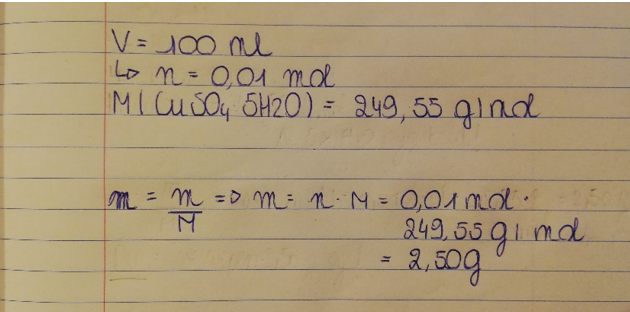 V = 100 ml
↳ n = 0,01 mol
M(CuSO4 5H2O) = 249,55 g/mol
n = m/M => m = n · M = 0,01 mol ·
249,55 g/mol
= 2,50g